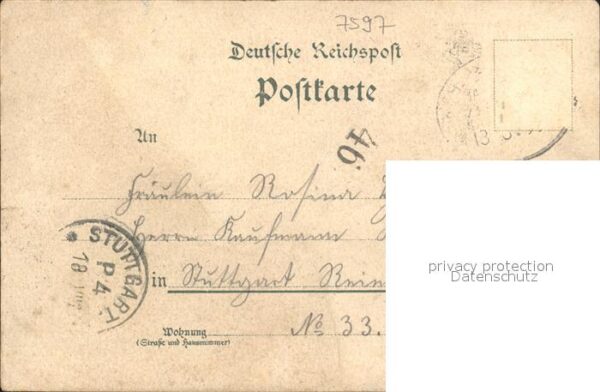 7597
Deutsche Reichspost
Postkarte
An
46.
13
Fräulein Rosina
Herrn Kaufmann
STUTTGART.
P4
18
in Stuttgart
Wohnung
(Straße und Hausnummer)
No 33.
privacy protection
Datenschutz